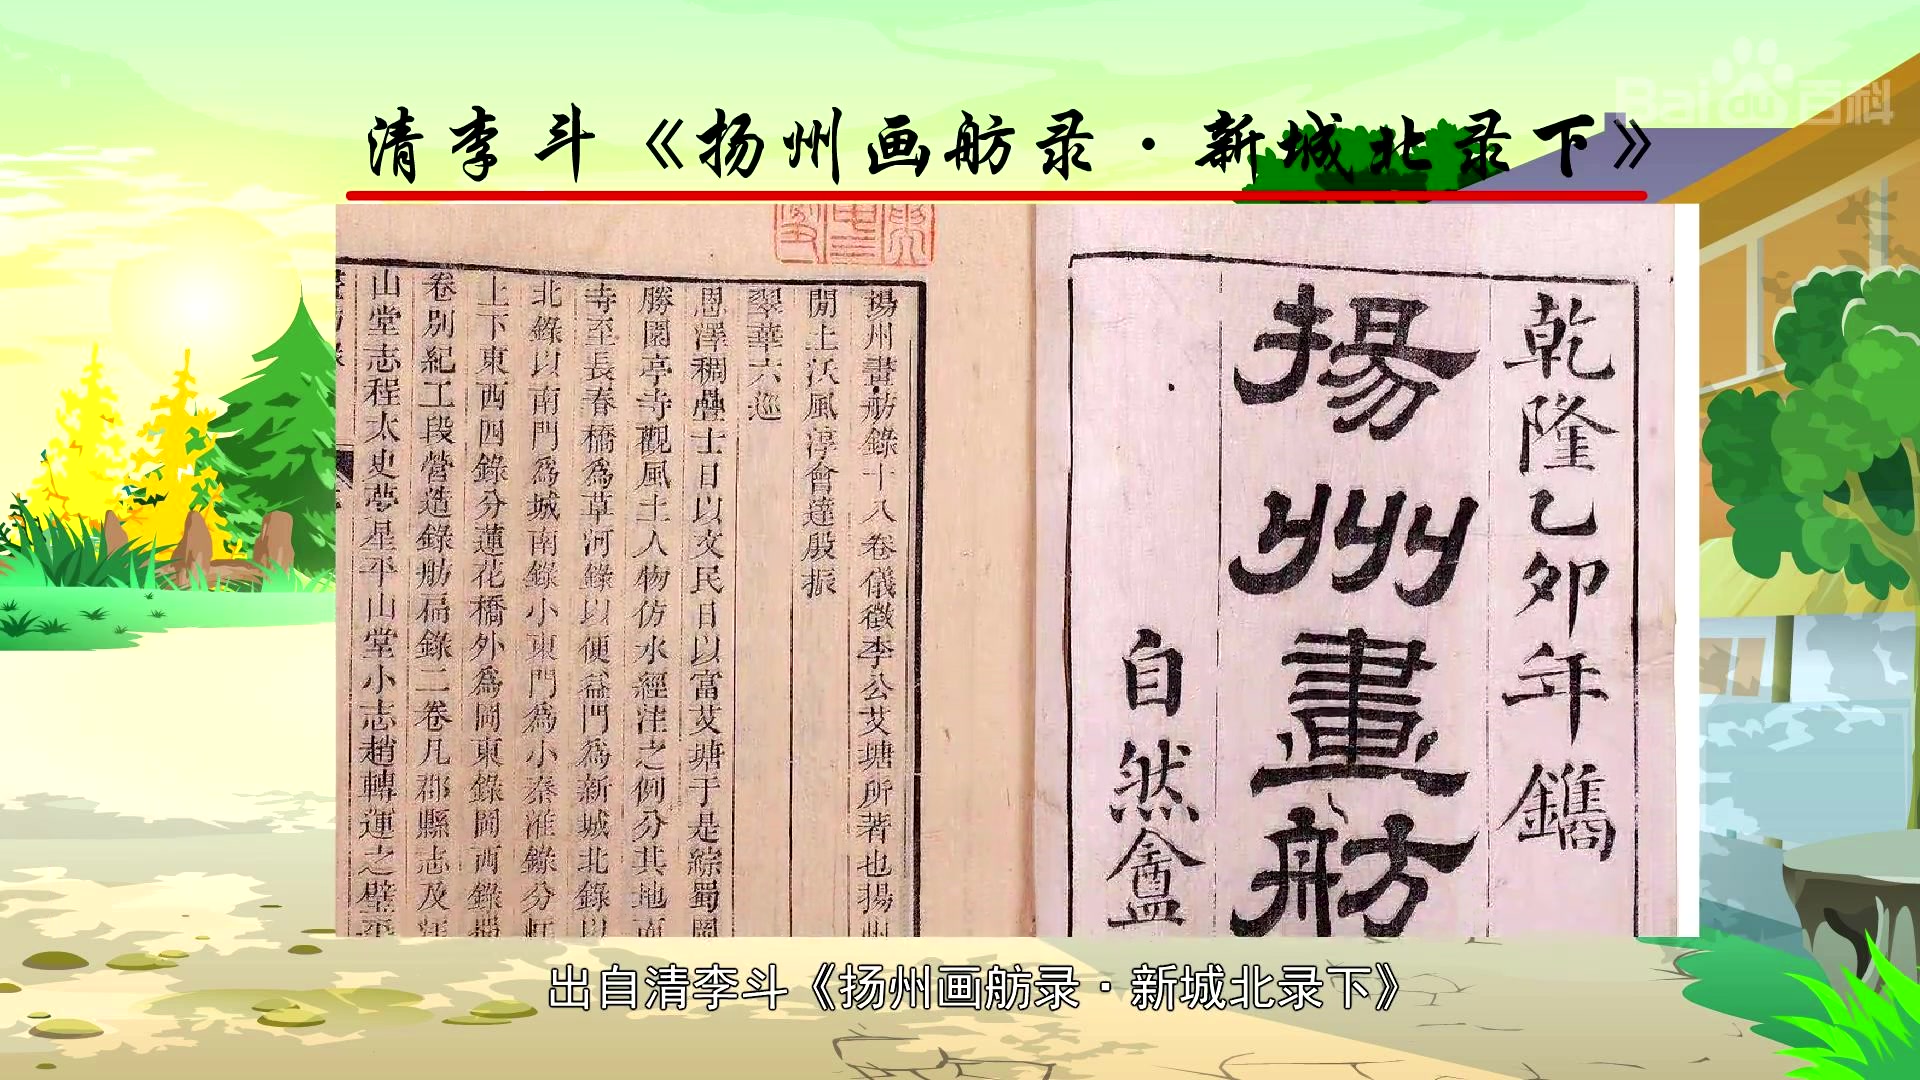 Bai 百科
清李斗《扬州画舫录·新城北录下》
乾隆乙卯年鐫
揚州畫舫
自然盦
揚州畫舫錄十八卷儀徵李公艾塘所著也揚州
閒土沃風淳會達殷振
翠華六巡
恩澤稠疊士日以文民日以富艾塘于是綜蜀岡
勝園亭寺觀風土人物仿水經注之例分其地而
寺至長春橋為草河錄以便益門為新城北錄以
北錄以南門為城南錄小東門為小秦淮錄分虹
上下東西四錄分蓮花橋外為岡東錄岡西錄蜀
卷別紀工段營造錄舫扁錄二卷凡郡縣志及汪
山堂志程太史夢星平山堂小志趙轉運之壁平
出自清李斗《扬州画舫录·新城北录下》